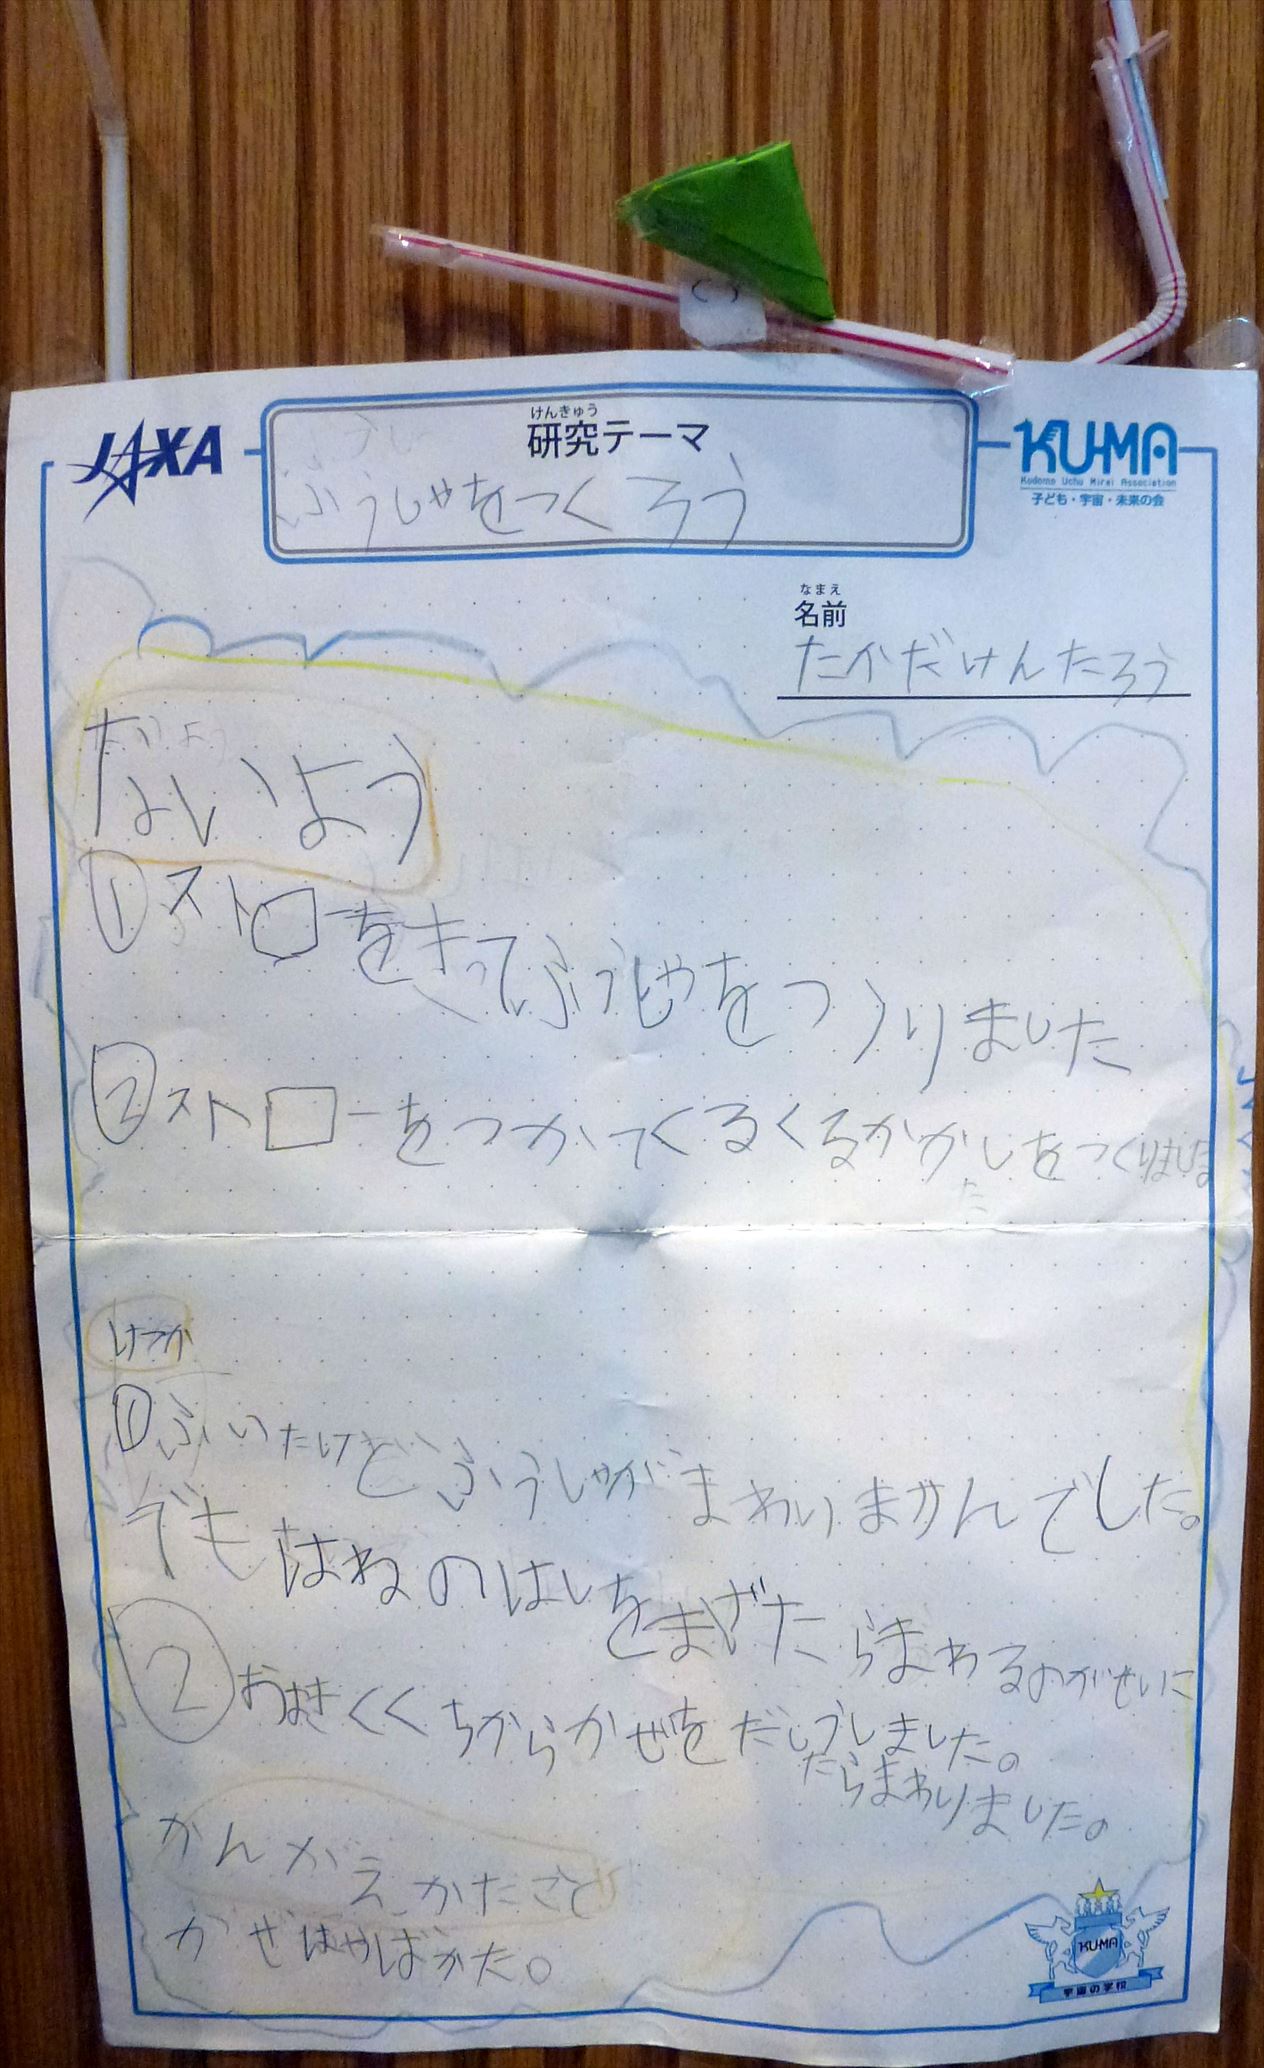 JAXA
けんきゅう
研究テーマ
ふうしゃをつくろう
KU-MA
Kodomo Uchu Mirai Association
子ども・宇宙・未来の会
なまえ
名前
たかだけんたろう
ないよう
①ストローをきってふうしゃをつくりました
②ストローをつかてくるくるかかしをつくりました
けつか
①ふいたけどふうしゃがまわりませんでした。
でもはねのはしをまげたらまわる
②おおきくくちからかぜをだしうしました。
たらまわりました。
かんがえかたこと
かぜは
KUMA
宇宙の学校